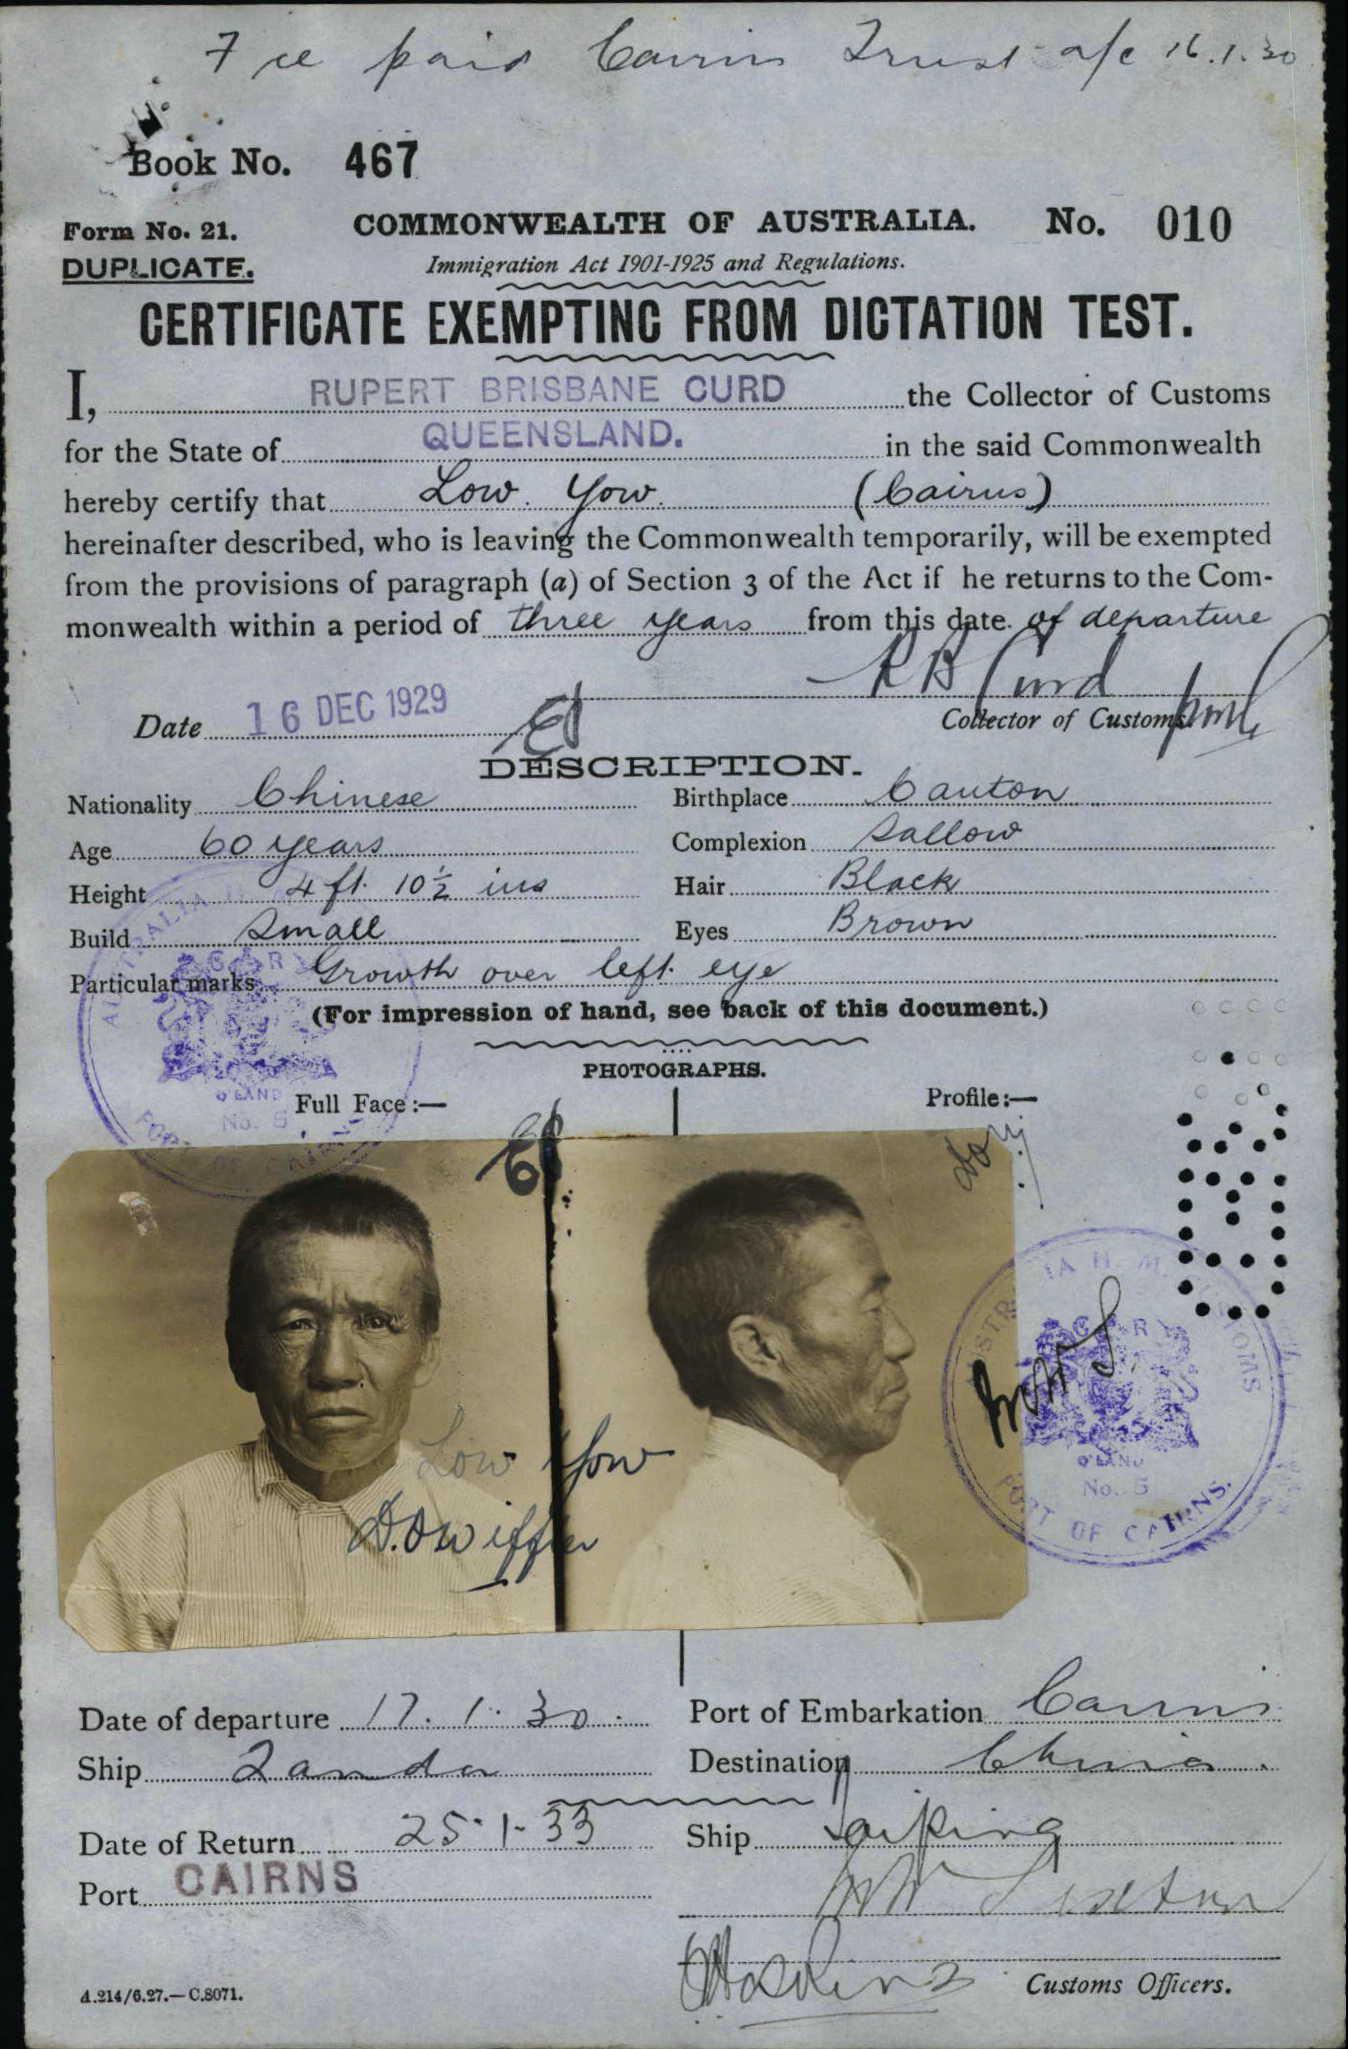 Fee paid Cairns Trust a/c 16.1.30
Book No. 467
Form No. 21. COMMONWEALTH OF AUSTRALIA. No. 010
DUPLICATE. Immigration Act 1901-1925 and Regulations.
CERTIFICATE EXEMPTING FROM DICTATION TEST.
I, RUPERT BRISBANE CURD the Collector of Customs
for the State of QUEENSLAND. in the said Commonwealth
hereby certify that Low Yow. (Cairns)
hereinafter described, who is leaving the Commonwealth temporarily, will be exempted
from the provisions of paragraph (a) of Section 3 of the Act if he returns to the Com-
monwealth within a period of three years from this date of departure
R B Curd
Date 16 DEC 1929 Collector of Customs
DESCRIPTION.
Nationality Chinese Birthplace Canton
Age 60 years Complexion Sallow
Height 4 ft. 10½ ins Hair Black
Build Small Eyes Brown
Particular marks Growth over left eye
(For impression of hand, see back of this document.)
PHOTOGRAPHS.
Full Face:— Profile:—
Q'LAND
No. 5
PORT OF CAIRNS
Low Yow
G R
Q'LAND
No. 5
PORT OF CAIRNS.
Date of departure 17.1.30. Port of Embarkation Cairns
Ship Tanda Destination China.
Date of Return 25-1-33 Ship Taiping
Port CAIRNS
Customs Officers.
A.214/6.27.—C.8071.